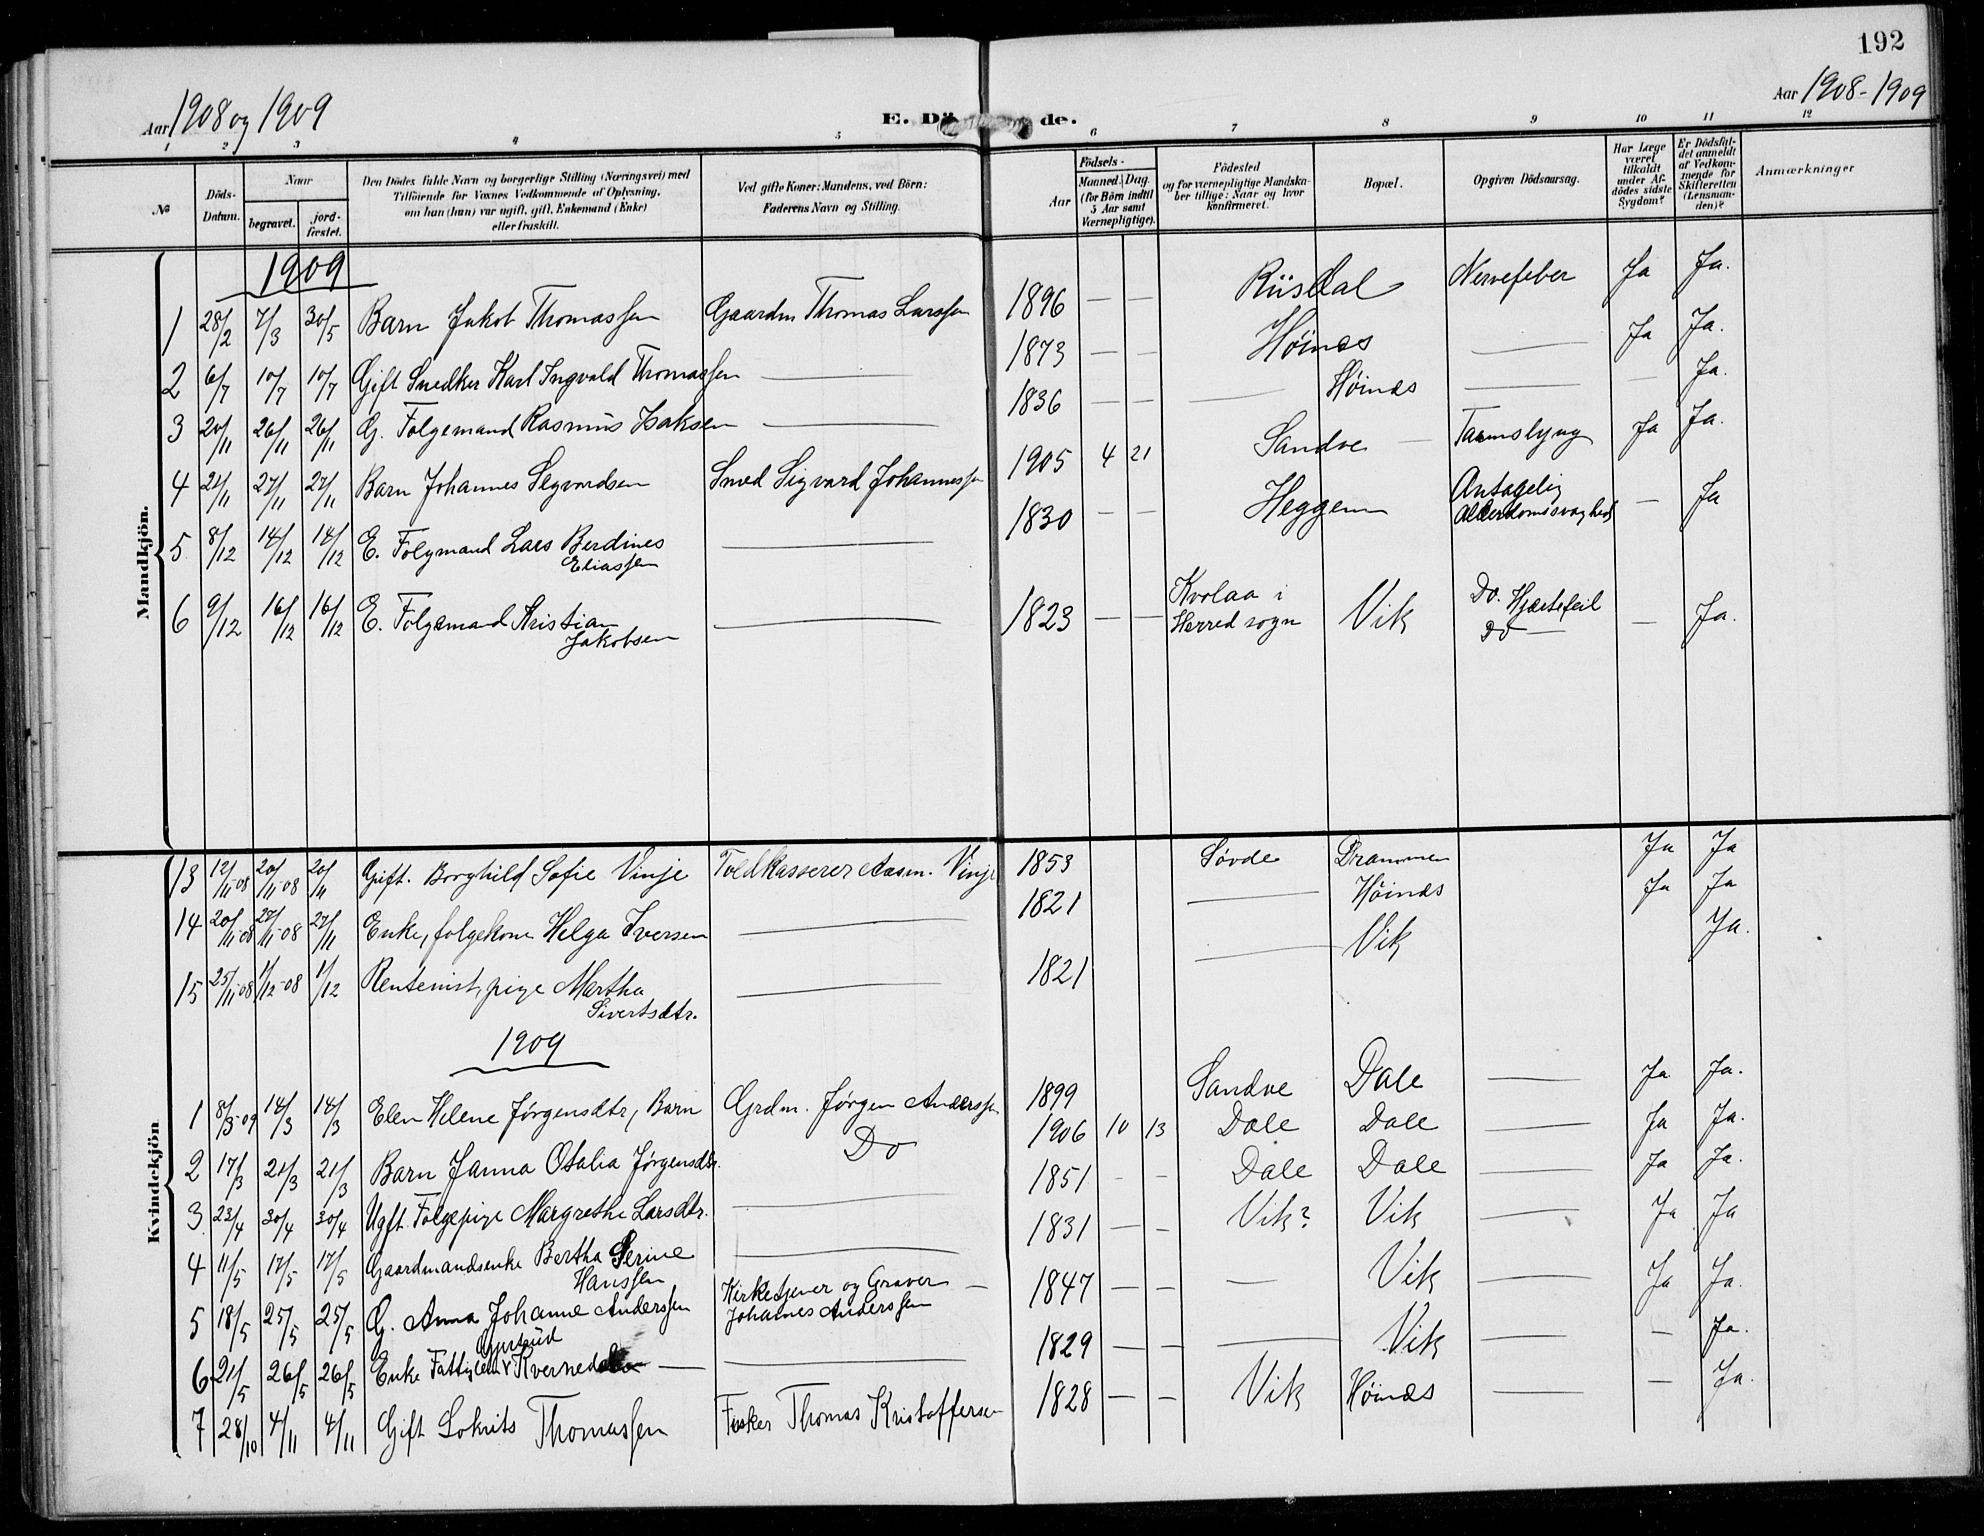 192
Aar 1908 og 1909
E. Dö de.
Aar 1908-1909
1 2 3 4 5 6 7 8 9 10 11 12
№
Döds-Datum.
Naar
begravet.
jord-fæstet.
Den Dödes fulde Navn og borgerlige Stilling (Næringsvei) med
Tilföiende for Voxnes Vedkommende af Oplysning,
om han (hun) var ugift, gift, Enkemand (Enke)
eller fraskilt.
Ved gifte Koner: Mandens, ved Börn:
Faderens Navn og Stilling.
Födsels-
Aar
Maaned. Dag
(for Börn indtil
5 Aar samt
Værnepligtige).
Födested
og for værnepligtige Mandska-
ber tillige: Naar og hvor
konfirmeret.
Bopæl.
Opgiven Dödsaarsag.
Har Læge
været
tilkaldt
under Af-
dödes sidste
Sygdom?
Er Dödsfal-
det anmeldt
af Vedkom-
mende for
Skifteretten
(Lensman-
den)?
Anmærkninger
Mandkjön.
1909
1 28/2 7/3 30/5 Barn Jakob Thomassen Gaardm Thomas Larssen 1896 — — Riisdal Nervefeber Ja Ja.
2 6/7 10/7 10/7 Gift Snedker Karl Ingvald Thomassen — 1873 — — Høines — Ja Ja.
3 20/11 26/11 26/11 G. Folgemand Rasmus Isaksen — 1836 — — — Høines — — Ja.
4 21/11 27/11 27/11 Barn Johannes Segvardsen Smed Sigvard Johannessen 1905 4 21 Sandve — Tarmslyng Ja Ja.
5. 8/12 14/12 14/12 E. Folgmand Lars Berdines
Eliassen — 1830 — — Heggem Antagelig
Alderdomssvaghed — Ja
6 9/12 16/12 16/12 E. Folgemand Kristian
Jakobsen — 1823 — — Kvolaa i
Herred sogn Vik Do. Hjertefeil
Do — — Ja.
Kvindekjön
13 12/11-08 20/11-08 20/11 Gift. Borghild Sofie Vinje Toldkasserer Aasm. Vinje 1853 Søvde Drammen Ja Ja
14 20/11-08 27/11-08 27/11 Enke, folgekone Helga Iversen — 1821 — Høines Ja Ja
15 25/11-08 1/12-08 1/12 Rentenist, pige Martha
Sivertsdtr. — 1821 — Vik Ja.
1909
1 8/3-09 14/3 14/3 Elen Helene Jørgensdtr, Barn Grdm. Jørgen Anderssen 1899 Sandve Dale — Ja Ja.
2 17/3 21/3 21/3 Barn Janna Otalia Jørgensdtr. Do 1906 10 13 Dale Dale — Ja Ja.
3. 23/4 30/4 30/4 Ugft. Folgepige Margrethe Larsdtr. — 1851 - - Dale Dale — Ja Ja.
4 11/5 17/5 17/5 Gaardmandsenke Bertha Serine
Hanssen — 1831 — — Vik? Vik — Ja Ja
5 18/5 25/5 25/5 G. Anna Johanne Anderssen Kirketjener og Graver
Johannes Anderssen — 1847 — — — Vik — Ja Ja.
6 21/5 26/5 26/5 Enke Fattiglem Gjertrud
Kvernedalen — — 1829 — — — Vik — — Ja.
7 28/10 4/11 4/11 Gift Lokrits Thomassen Fisker Thomas Kristoffersen 1828 — — Vik Høines — — Ja.